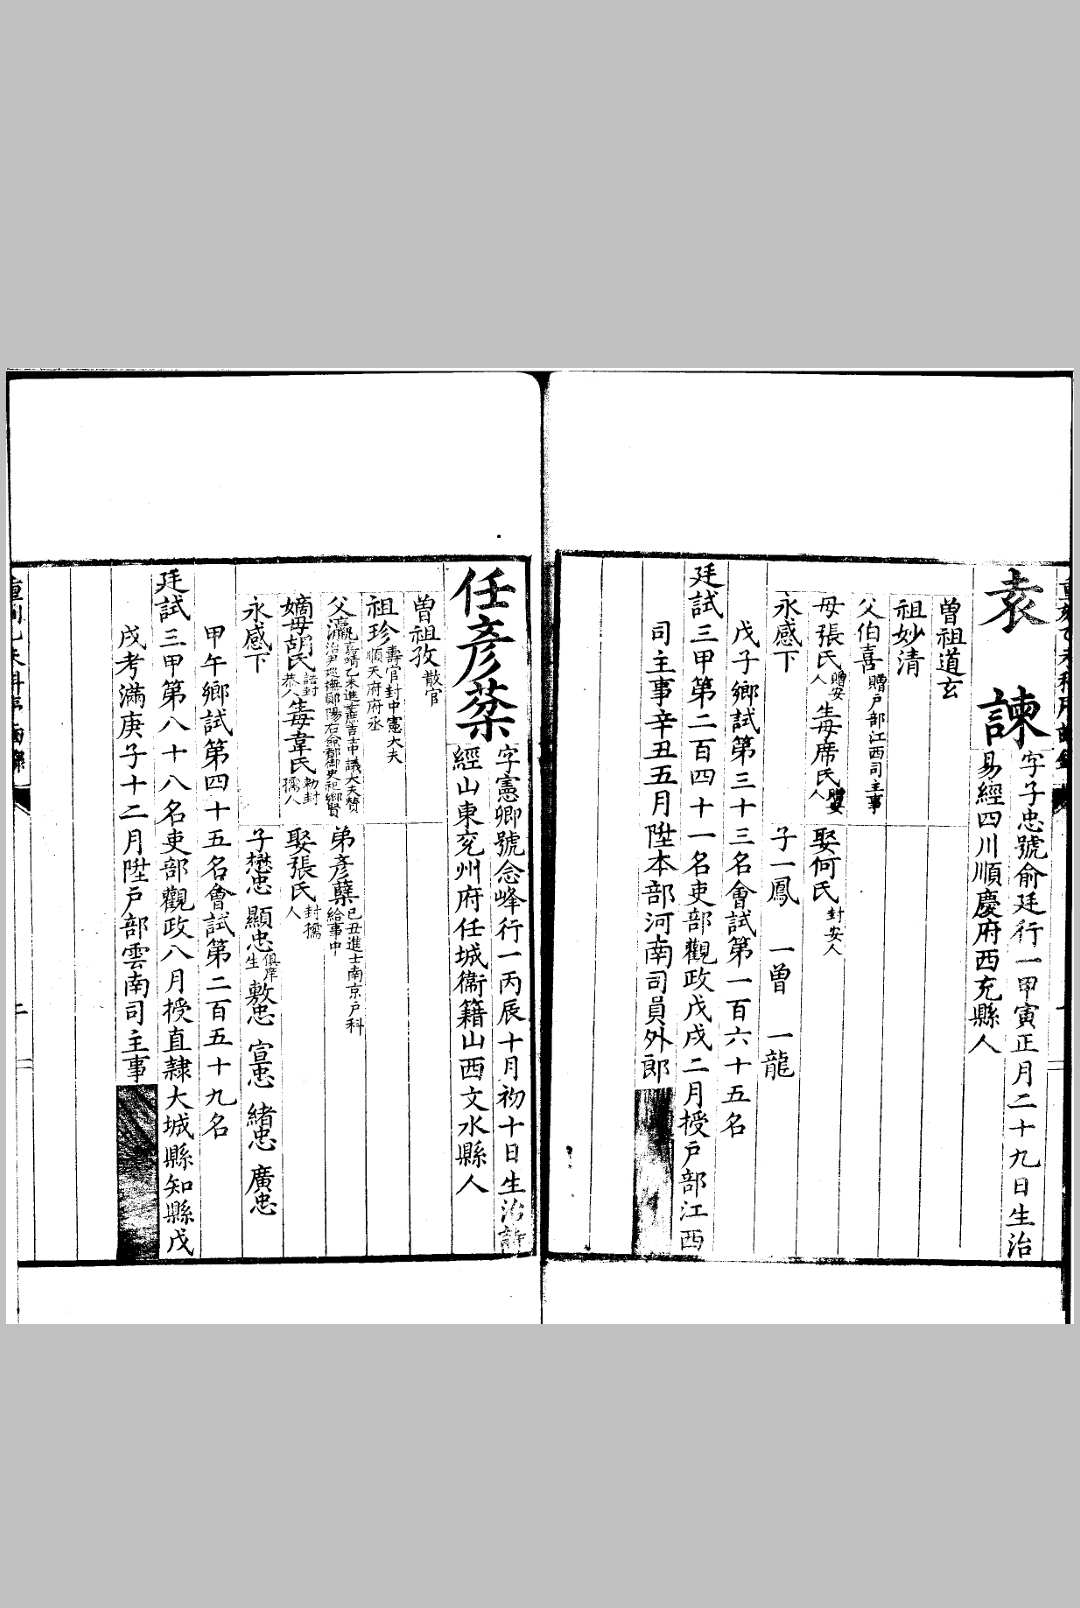 袁 諫
字子忠號俞廷行一甲寅正月二十九日生治
易經四川順慶府西充縣人
曽祖道玄
祖妙清
父伯喜贈戸部江西司主事
母張氏贈安人 生母席氏贈安人 娶何氏封安人
永感下 子一鳳 一曽 一龍
戊子鄉試第三十三名會試第一百六十五名
廷試三甲第二百四十一名吏部觀政戊戌二月授戸部江西
司主事辛丑五月陞本部河南司員外郎
任彦棻
字憲卿號念峰行一丙辰十月初十日生治詩
經山東兖州府任城衞籍山西文水縣人
曽祖孜散官
祖珍壽官封中憲大夫順天府府丞
弟彦蘖已丑進士南京戸科給事中
嫡母胡氏誥封恭人 生母韋氏勅封孺人 娶張氏封孺人
永感下 子懋忠 顯忠俱庠生 敷忠 宣忠 緒忠 廣忠
甲午鄉試第四十五名會試第二百五十九名
廷試三甲第八十八名吏部觀政八月授直隷大城縣知縣戊
戌考滿庚子十二月陞戸部雲南司主事